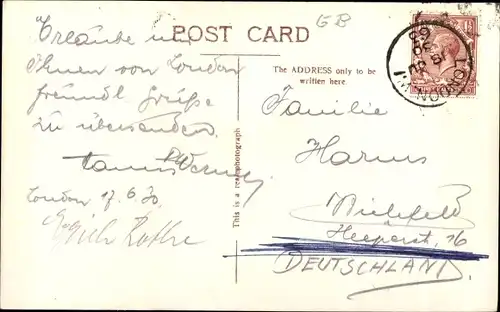 GB
POST CARD
Erlaube mir
Ihnen von London
freundl Grüße
zu übersenden
London 17.6.30.
The ADDRESS only to be
written here.
This is a real photograph
Familie
Harms
Bielefeld
Heeperst. 16
DEUTSCHLAND
LONDON. W.1